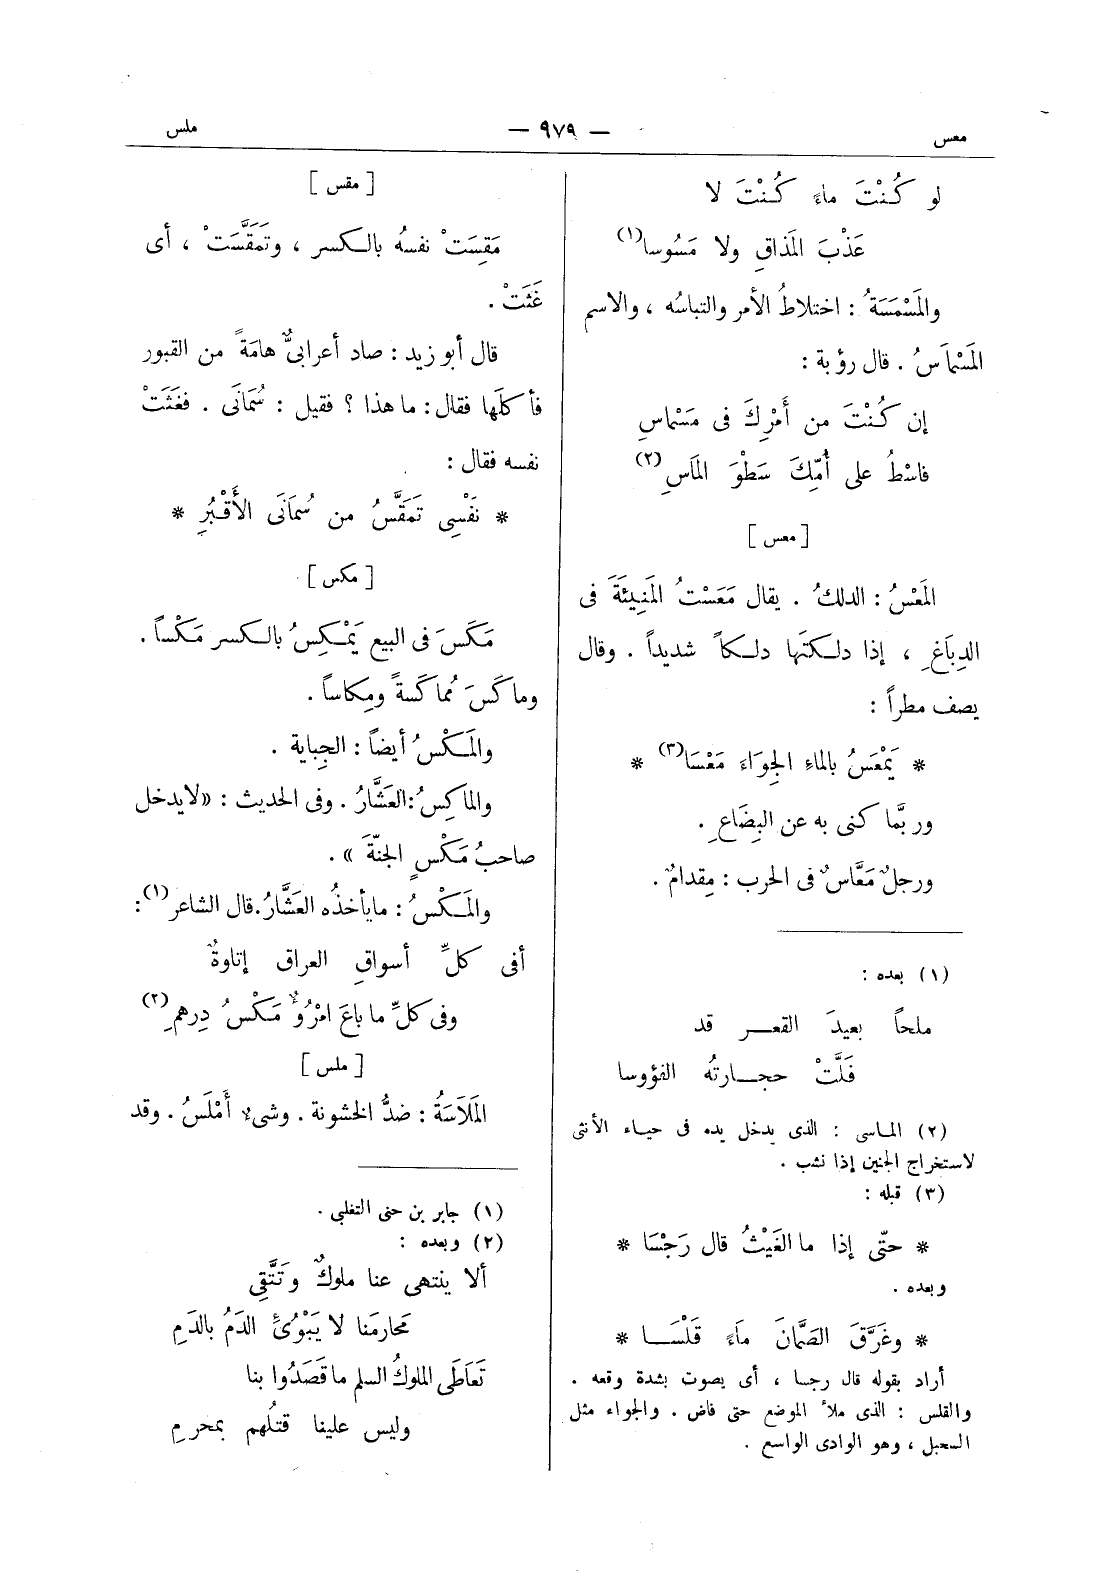 معس
— ٩٧٩ —
ملس
لو كُنْتَ ماءً كُنْتَ لا
عَذْبَ المَذاقِ ولا مَسُوسا(١)
والمَسْمَسَةُ : اختلاطُ الأمر والتباسُه ، والاسم
المَسْمَاسُ . قال رؤبة :
إن كُنْتَ من أَمْرِكَ فى مَسْمَاسِ
فاسْطُ على أُمِّكَ سَطْوَ المَاسِ(٢)
[ معس ]
المَعْسُ : الدلكُ . يقال مَعَسْتُ المَنِيئَةَ فى
الدِبَاغِ ، إذا دلكتَها دلكاً شديداً . وقال
يصف مطراً :
* يَمْعَسُ بالماءِ الجِوَاءَ مَعْسَا(٣) *
وربَّما كنى به عن البِضَاعِ .
ورجلٌ مَعَّاسٌ فى الحرب : مِقدامٌ .
(١) بعده :
ملحاً بعيدَ القعـر قد
فَلَّتْ حجـارتُه الفؤوسا
(٢) الماسى : الذى يدخل يده فى حياء الأنثى
لاستخراج الجنين إذا نشب .
(٣) قبله :
* حتّى إذا ما الغَيْثُ قال رَجْسَا *
وبعده .
* وغَرَّقَ الصَّمَّانَ مَاءً قَلْسَـا *
أراد بقوله قال رجسا ، أى يصوت بشدة وقعه .
والقلس : الذى ملأ الموضع حتى فاض . والجواء مثل
السحبل ، وهو الوادى الواسع .
[ مقس ]
مَقِسَتْ نفسُه بالكسر ، وتَمَقَّسَتْ ، أى
غَثَتْ .
قال أبو زيد : صاد أعرابىٌّ هامَةً من القبور
فأكلَها فقال : ما هذا ؟ فقيل : سُمَانَى . فغَثَتْ
نفسه فقال :
* نَفْسِى تَمَقَّسُ من سُمَانَى الأَقْبُرِ *
[ مكس ]
مَكَسَ فى البيع يَمْكِسُ بالكسر مَكْساً .
وماكَسَ مُماكَسةً ومِكاساً .
والمَكْسُ أيضاً : الجِباية .
والماكِسُ : العَشَّارُ . وفى الحديث : «لايدخل
صاحبُ مَكْسٍ الجنّةَ » .
والمَكْسُ : مايأخذُه العَشَّارُ. قال الشاعر(١) :
أفى كلِّ أسواقِ العراق إتاوةٌ
وفى كلِّ ما باعَ امْرُؤٌ مَكْسُ دِرهمِ(٢)
[ ملس ]
المَلَاسَةُ : ضدُّ الخشونة . وشىء أَمْلَسُ . وقد
(١) جابر بن حنى التغلبى .
(٢) وبعده :
ألا ينتهى عنا ملوكٌ وتَتَّقِى
محارمَنا لا يَبْوُئُ الدَمُ بالدَمِ
تَعَاطَى الملوكُ السلم ما قَصَدُوا بنا
وليس علينا قتلُهم بمحرمِ